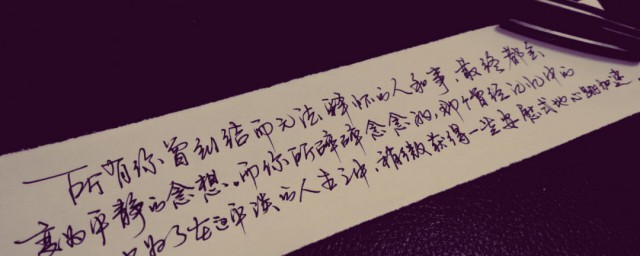 所有你曾纠结而无法释怀的人和事,最终都会
变为平静的念想。而你所碎碎念念的,那个曾经记忆中的
为了在这平淡的人生中,稍微获得一些安慰或也心跳加速